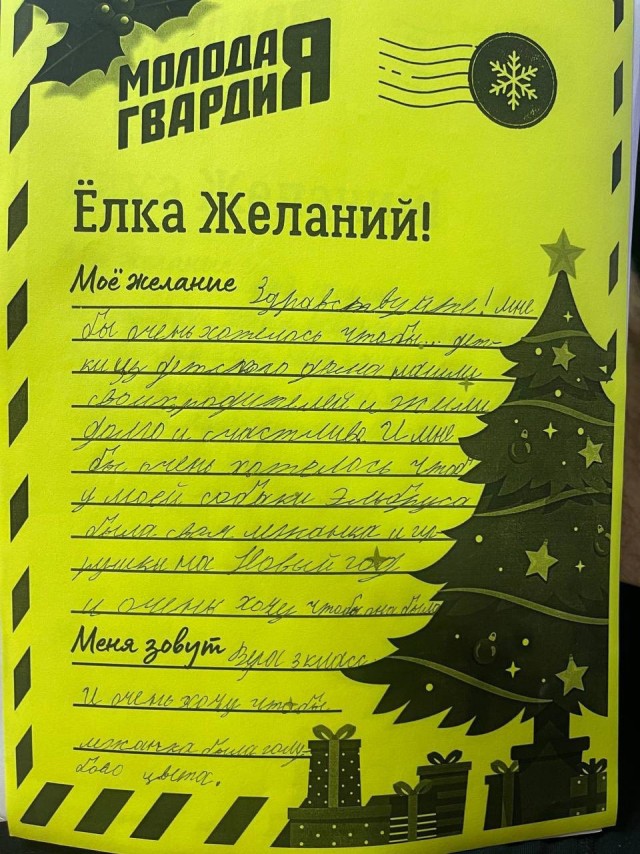 МОЛОДАЯ
ГВАРДИЯ
Ёлка Желаний!
Моё желание Здравствуйте! мне
бы очень хотелось чтобы... дет-
ки из детского дома нашли
своих родителей и жили
долго и счастливо И мне
бы очень хотелось чтоб
у моей собаки Эльбруса
была своя лежанка и иг-
рушки на Новый год
и очень хочу чтобы она была
Меня зовут Вера 3 класс
И очень хочу чтобы
лежанка была голу-
бого цвета.